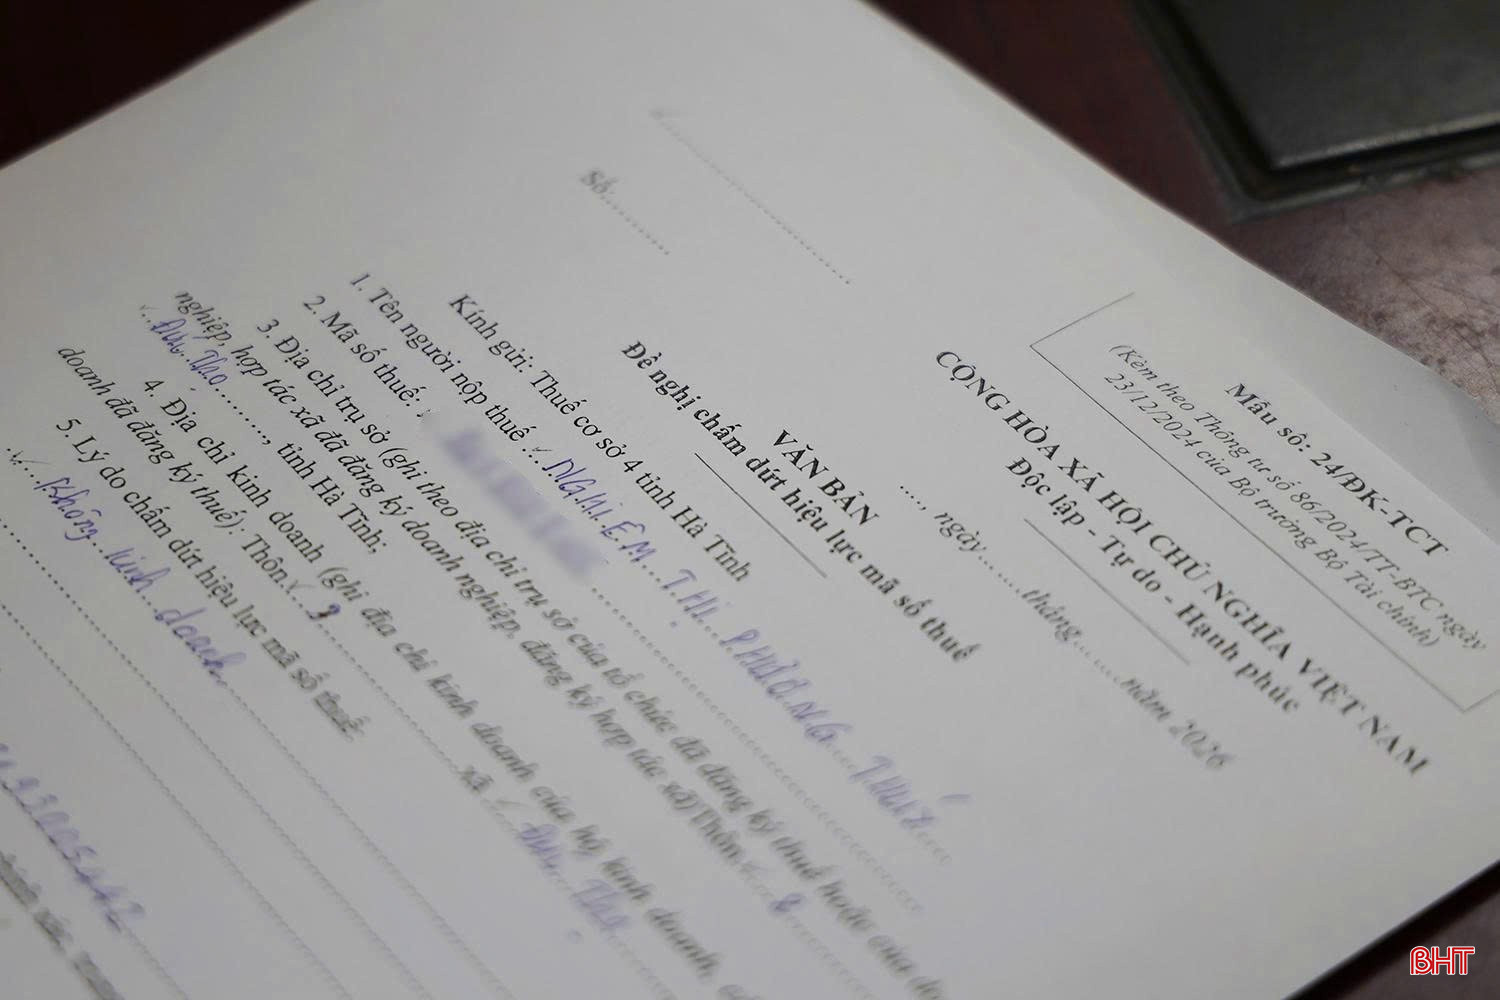 Mẫu số: 24/ĐK-TCT
(Kèm theo Thông tư số 86/2024/TT-BTC ngày
23/12/2024 của Bộ trưởng Bộ Tài chính)
CỘNG HÒA XÃ HỘI CHỦ NGHĨA VIỆT NAM
Độc lập - Tự do - Hạnh phúc
....., ngày.......tháng.......năm 2026
Số:..........
VĂN BẢN
Đề nghị chấm dứt hiệu lực mã số thuế
Kính gửi: Thuế cơ sở 4 tỉnh Hà Tĩnh
1. Tên người nộp thuế ... NGHIÊM THỊ PHƯƠNG
2. Mã số thuế:
3. Địa chỉ trụ sở (ghi theo địa chỉ trụ sở của tổ chức đã đăng ký thuế hoặc của
nghiệp, hợp tác xã đã đăng ký doanh nghiệp, đăng ký hợp tác xã) Thôn 8
Đức Thọ, tỉnh Hà Tĩnh;
4. Địa chỉ kinh doanh (ghi địa chỉ kinh doanh của hộ kinh doanh,
doanh đã đăng ký thuế): Thôn 3 xã Đức Thọ
5. Lý do chấm dứt hiệu lực mã số thuế:
Không kinh doanh
BHT